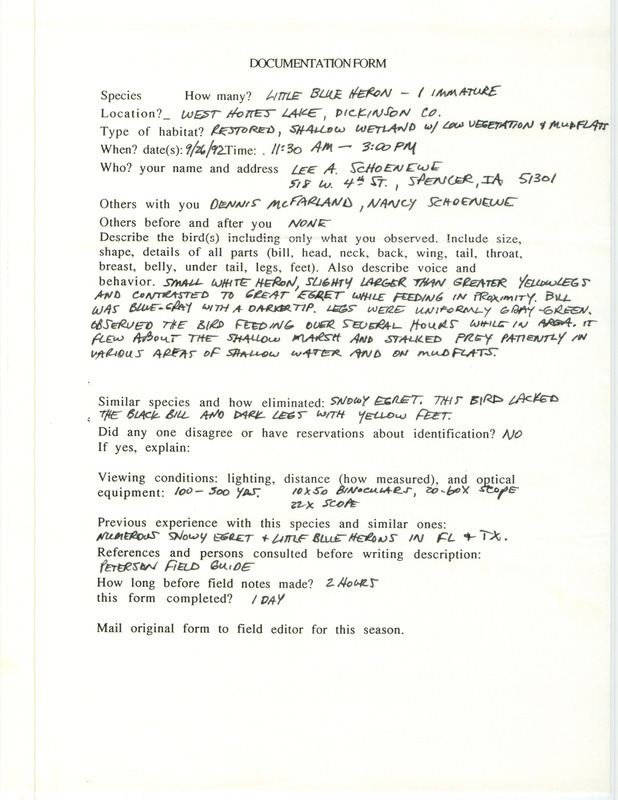 DOCUMENTATION FORM
Species How many? LITTLE BLUE HERON - 1 IMMATURE
Location?_ WEST HOTTES LAKE, DICKINSON CO.
Type of habitat? RESTORED, SHALLOW WETLAND W/ LOW VEGETATION & MUDFLATS
When? date(s): 9/26/92 Time: . 11:30 AM - 3:00 PM
Who? your name and address LEE A. SCHOENEWE
518 W. 4th ST., SPENCER, IA 51301
Others with you DENNIS MCFARLAND, NANCY SCHOENEWE
Others before and after you NONE
Describe the bird(s) including only what you observed. Include size,
shape, details of all parts (bill, head, neck, back, wing, tail, throat,
breast, belly, under tail, legs, feet). Also describe voice and
behavior. SMALL WHITE HERON, SLIGHTY LARGER THAN GREATER YELLOWLEGS
AND CONTRASTED TO GREAT EGRET WHILE FEEDING IN PROXIMITY. BILL
WAS BLUE-GRAY WITH A DARKER TIP. LEGS WERE UNIFORMLY GRAY-GREEN.
OBSERVED THE BIRD FEEDING OVER SEVERAL HOURS WHILE IN AREA. IT
FLEW ABOUT THE SHALLOW MARSH AND STALKED PREY PATIENTLY IN
VARIOUS AREAS OF SHALLOW WATER AND ON MUDFLATS.
Similar species and how eliminated: SNOWY EGRET. THIS BIRD LACKED
THE BLACK BILL AND DARK LEGS WITH YELLOW FEET.
Did any one disagree or have reservations about identification? NO
If yes, explain:
Viewing conditions: lighting, distance (how measured), and optical
equipment: 100-300 YDS. 10X50 BINOCULARS, 20-60X SCOPE
22X SCOPE
Previous experience with this species and similar ones:
NUMEROUS SNOWY EGRET & LITTLE BLUE HERONS IN FL & TX.
References and persons consulted before writing description:
PETERSON FIELD GUIDE
How long before field notes made? 2 HOURS
this form completed? 1 DAY
Mail original form to field editor for this season.